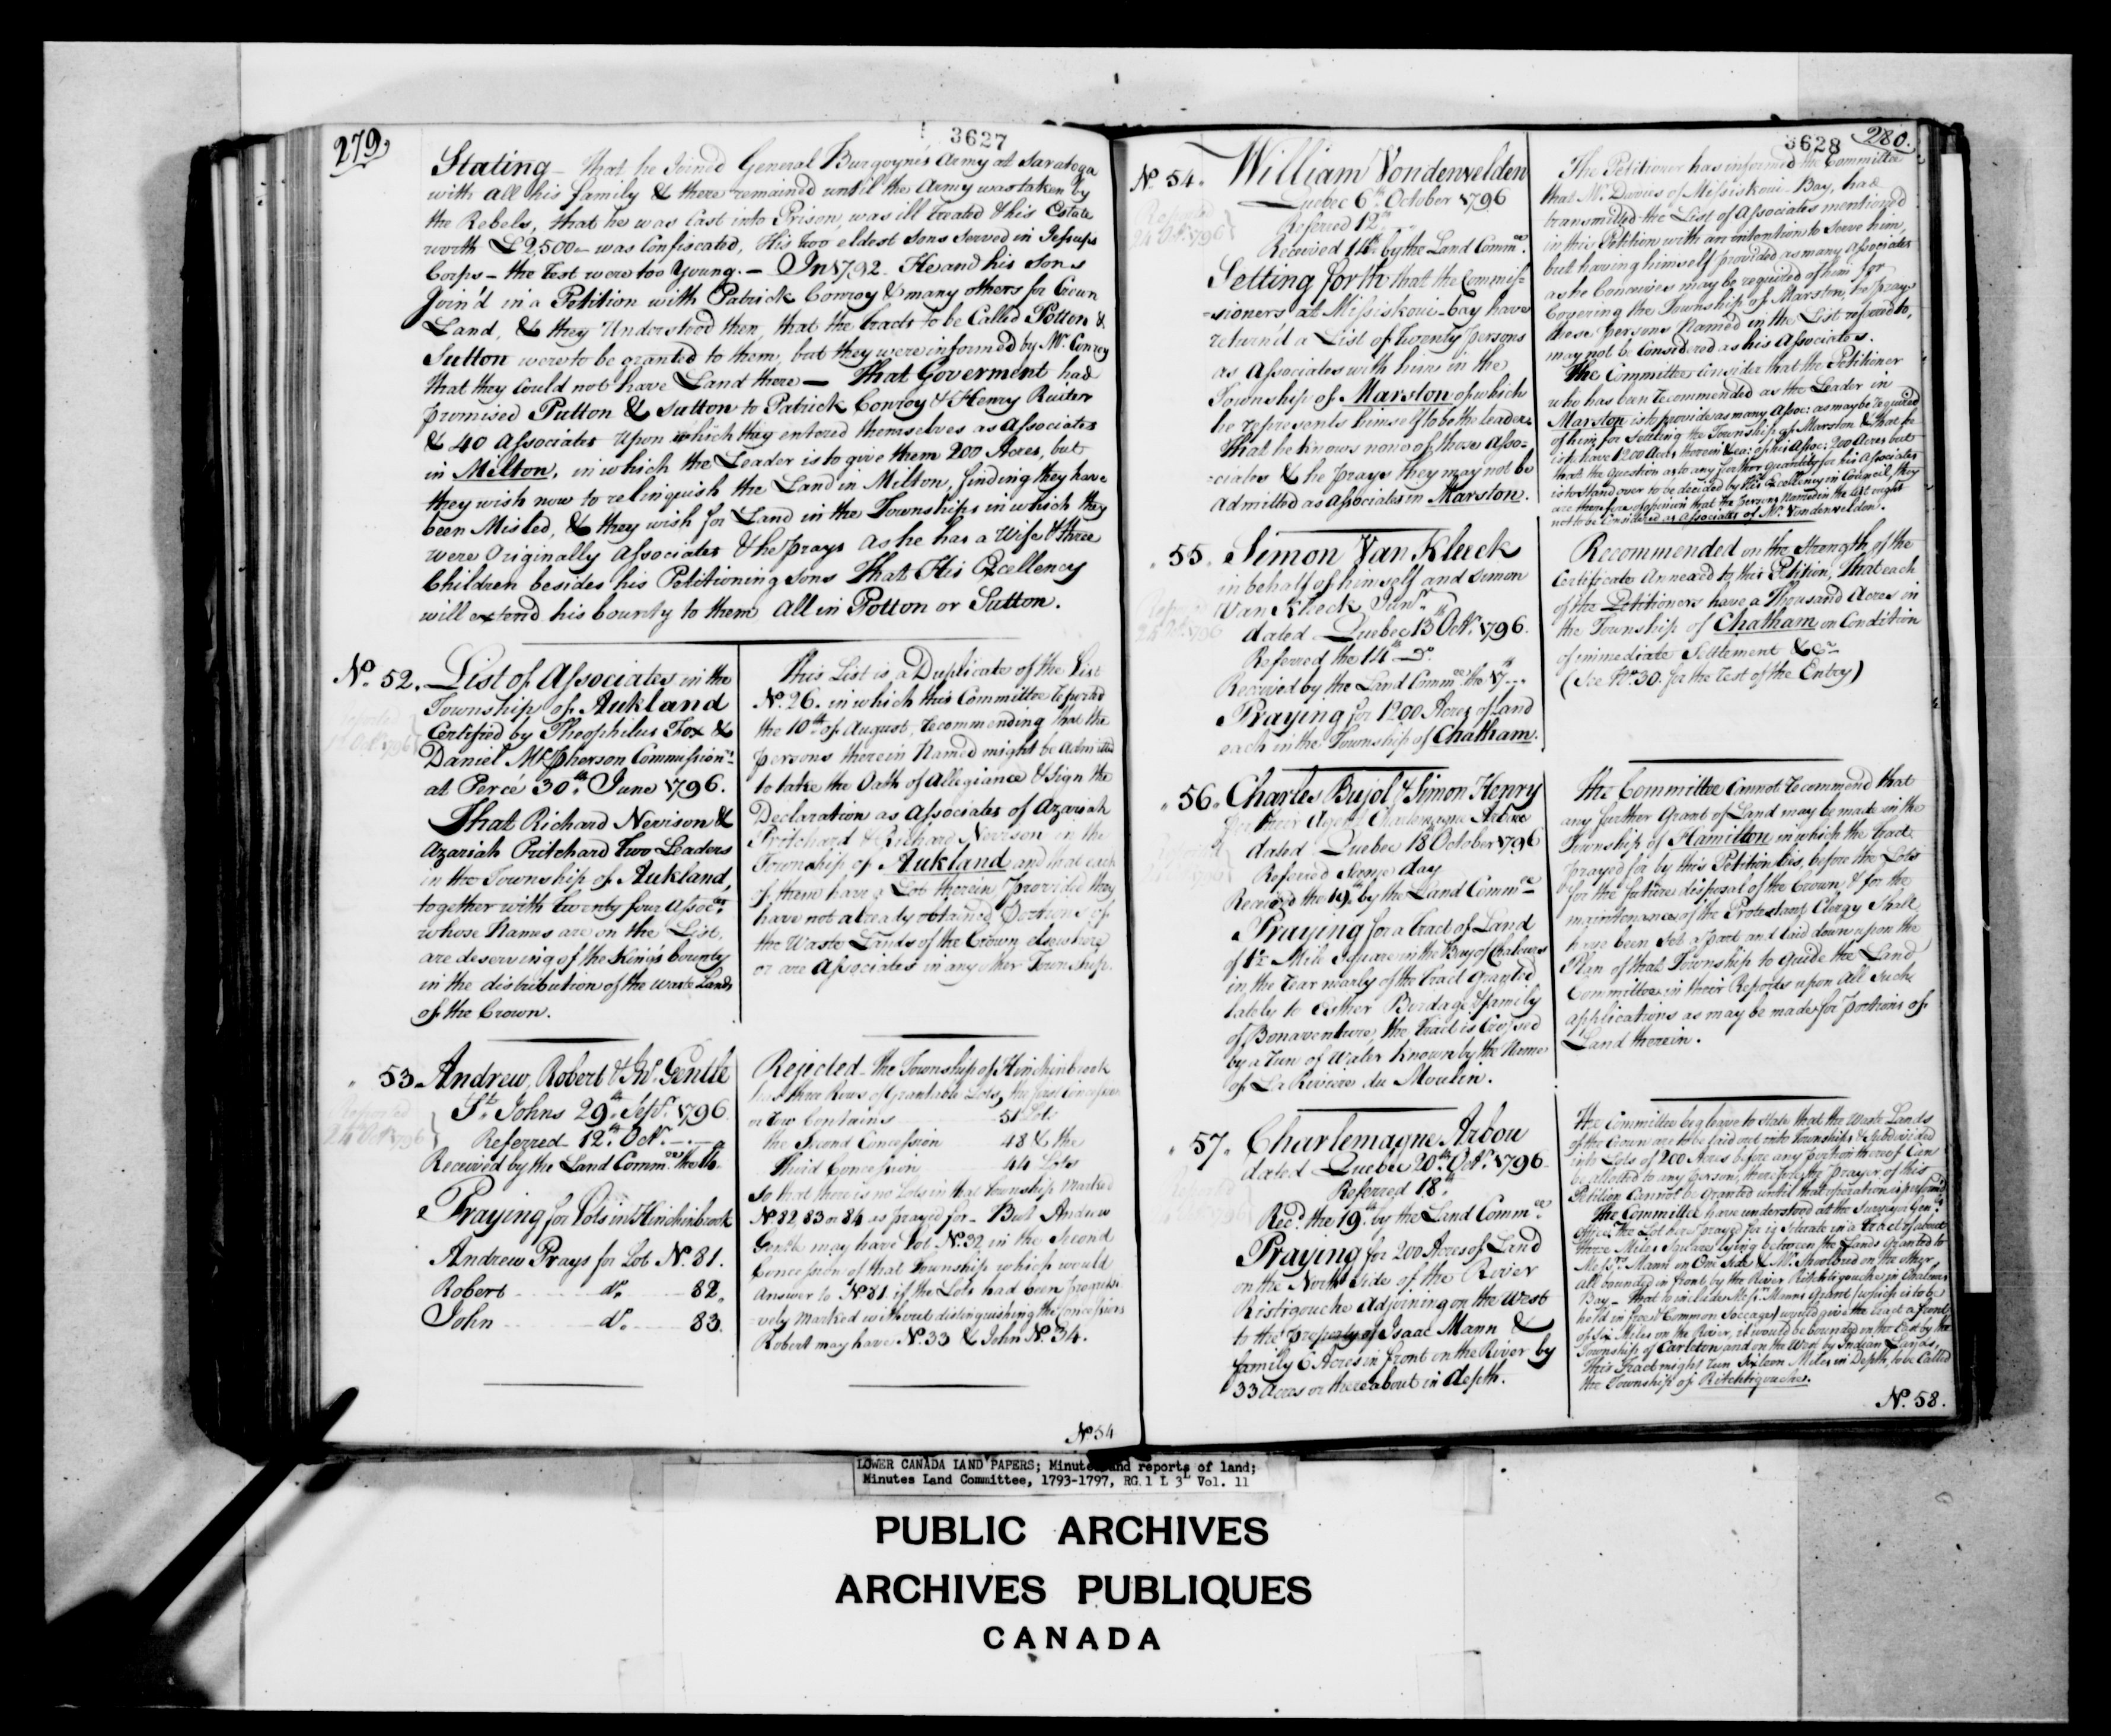 279.
3627
Stating - that he Joined General Burgoynes Army at Saratoga
with all his family & there remained until the Army was taken by
the Rebels, that he was Cast into Prison, was ill treated & his Estate
worth £2500 - was Confiscated, His two eldest Sons Served in Jessups
Corps - the rest were too Young. - In 1792 He and his Sons
Join'd in a Petition with Patrick Conroy & many others for Crown
Land, & they Understood then, that the tracts to be Called Potton &
Sutton were to be granted to them, but they were informed by Mr. Conroy
that they could not have Land there - That Goverment had
promised Putton & Sutton to Patrick Conroy & Henry Ruiter
& 40 Associates upon which they entered themselves as Associates
in Milton, in which the Leader is to give them 200 Acres, but
they wish now to relinquish the Land in Milton, finding they have
been Misled, & they wish for Land in the Townships in which they
were Originally Associates & he prays as he has a Wife & three
Children besides his Petitioning Sons That His Excellency
will extend his bounty to them all in Potton or Sutton.
No. 52. List of Associates in the
Township of Aukland
Certified by Theophilus Fox &
Daniel McPherson Commissionrs
at Percé 30th June 1796.
That Richard Nevison &
Azariah Pritchard two Leaders
in the Township of Aukland,
together with twenty four Assoces
whose Names are on the List,
are deserving of the King's bounty
in the distribution of the waste Lands
of the Crown.
This List is a Duplicate of the List
No. 26. in which this Committee reported
the 10th of August, recommending that the
persons therein Named might be admitted
to take the Oath of Allegiance & Sign the
Declaration as Associates of Azariah
Pritchard & Richard Nevison in the
Township of Aukland and that each
of them have a Lot therein, provided they
have not already obtained portions of
the Waste Lands of the Crown elsewhere
or are Associates in any other Township.
" 53. Andrew, Robert & Jno. Gentle
St. Johns 29th Septr. 1796
Referred 12th Octr.
Received by the Land Commee the 14.
Reported
24 Oct 1796
Praying for Lots in Hinchinbrook
Andrew Prays for Lot No. 81.
Robert do. 82.
John do. 83.
Rejected - the Township of Hinchinbrook
has three Rows of Grantable Lots, the first Concession
or row Contains 51 Lots
the Second Concession 48 & the
third Concession 44 Lots
So that there is no Lots in that Township Marked
No. 82, 83 or 84 as prayed for - But Andrew
Gentle may have Lot No. 32 in the Second
Concession of that Township which would
answer to No. 81 if the Lots had been progressi
-vely Marked without distinguishing the Concessions
Robert may have No. 33 & John No. 34.
No 54
3628
280.
No. 54. William Vondenvelden
Quebec 6th October 1796
Referred 12th
Received 14th by the Land Commee.
Reported
24 Oct. 1796
Setting forth that the Commis=
=sioners at Missiskoui-bay have
return'd a List of twenty persons
as Associates with him in the
Township of Marston of which
he represents himself to be the leader
That he knows none of these Asso=
=ciates & he prays they may not be
Admitted as Associates in Marston.
The Petitioner has informed the Committee
that Mr. Davies of Missiskoui-Bay, had
transmitted the List of Associates mentioned
in this Petition with an intention to Serve him,
but having himself provided as many Associates
as he Conceives may be required of him for
Covering the Township of Marston, he prays
these persons Named in the List refered to,
may not be Considered as his Associates.
The Committee Consider that the Petitioner
who has been recommended as the Leader in
Marston is to provide as many Assoc: as may be required
of him for Settling the Township of Marston & that he
is to have 1200 Acres therein & ea: of his Assoc: 200 Acres but
that the Question as to any further Quantity for his Associates
is to Stand over to be decided by His Excellency in Council, they
are therefore of opinion that the persons Named in the List ought
not to be Considered as Associates of Mr. Vondenvelden.
" 55. Simon Van Kleeck
in behalf of himself and Simon
Van Kleeck Junr.
dated Quebec 13th Octr. 1796.
Referred the 14th Do.
Received by the Land Commee. the 17th
Praying for 1200 Acres of Land
each in the Township of Chatham.
Recommended on the Strength of the
Certificate Annexed to this Petition, That each
of the Petitioners have a Thousand Acres in
the Township of Chatham on Condition
of immediate Settlement &ca
(See No. 30. for the rest of the Entry)
" 56. Charles Bujol & Simon Henry
per their Agent Charlemagne Arbou
dated Quebec 18th October 1796
Referred Same day
Received the 19th by the Land Commee
Praying for a tract of Land
of 1½ Mile Square in the Bay of Chaleurs
in the rear nearly of the tract granted
lately to Esther Bordage & family
of Bonaventure, the tract is Crossed
by a run of Water Known by the Name
of La Riviere du Moulin.
The Committee Cannot recommend that
any further Grant of Land may be made in the
Township of Hamilton in which the tract
prayed for by this Petition lies, before the Lots
for the future disposal of the Crown & for the
maintenance of the Protestant Clergy Shall
have been Set apart and laid down upon the
Plan of that Township to guide the Land
Committee in their Reports upon all Such
applications as may be made for portions of
Land therein.
" 57. Charlemagne Arbou
dated Quebec 20th Octr. 1796
Referred 18th
Recd. the 19th by the Land Commee
Praying for 200 Acres of Land
on the North Side of the River
Ristigouche adjoining on the West
to the property of Isaac Mann &
family 6 Acres in front on the River by
33 Acres or thereabout in depth.
The Committee beg leave to State that the Waste Lands
of the Crown are to be laid out into Townships & Subdivided
into Lots of 200 Acres before any portion thereof Can
be allotted to any person, therefore the prayer of this
Petition Cannot be Granted until that operation is performed
The Committee have understood at the Surveyor Genls
Office the Lot here Prayed for is Situate in a tract of about
three Miles Square lying between the Lands granted to
Messrs. Mann on One Side & Mr. Shoolbred on the other
all bounded in front by the River Ritchtigouche in Chaleurs
Bay - that to include Messrs. Manns Grant (which is to be
held in free & Common Soccage) would give the tract a front
of Six Miles on the River, it would be bounded on the East by the
Township of Carleton and on the West by Indian Lands,
This Tract might run Sixteen Miles in Depth, to be Called
the Township of Ritchtigouche.
No. 58.
LOWER CANADA LAND PAPERS; Minutes and reports of land;
Minutes Land Committee, 1793-1797, RG 1 L 3L Vol. 11
PUBLIC ARCHIVES
ARCHIVES PUBLIQUES
CANADA